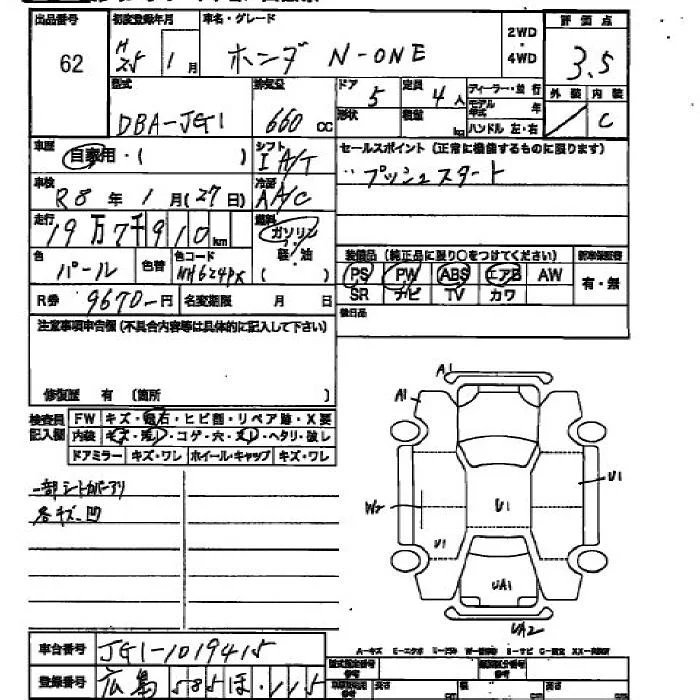 出品番号
62
初度登録年月
H25 1月
車名・グレード
ホンダ N-ONE
2WD
・
4WD
評価点
3.5
外装 内装
C
型式
DBA-JG1
排気量
660 CC
ドア
5
定員
4人
形状
積量
kg
ディーラー・並行
モデル年式 年
ハンドル 左・右
車歴
自家用・( )
シフト
I A/T
セールスポイント(正常に機能するものに限ります)
プッシュスタート
車検
R8年1月(27日)
冷房
AA/C
走行
19万7千910km
燃料
ガソリン
軽・油
( )
色
パール
色替
色コード
NH624PX
装備品(純正品に限り○をつけてください)
新車保証書
PS PW ABS エアB AW
SR ナビ TV カワ
有・無
R券
9670-円
名変期限 月 日
後日品
注意事項申告欄(不具合内容等は具体的に記入して下さい)
修復歴 有 (箇所 )
検査員記入欄
FW キズ・飛石・ヒビ割・リペア跡・X要
内装 キズ・汚レ・コゲ・穴・スレ・ヘタリ・破レ
ドアミラー キズ・ワレ ホイール・キャップ キズ・ワレ
一部シートカバーアリ
各キズ、凹
A1
A1
W2
U1
U1
U1
UA1
UA2
車台番号
JG1-1019415
登録番号
広島 585 ほ・115